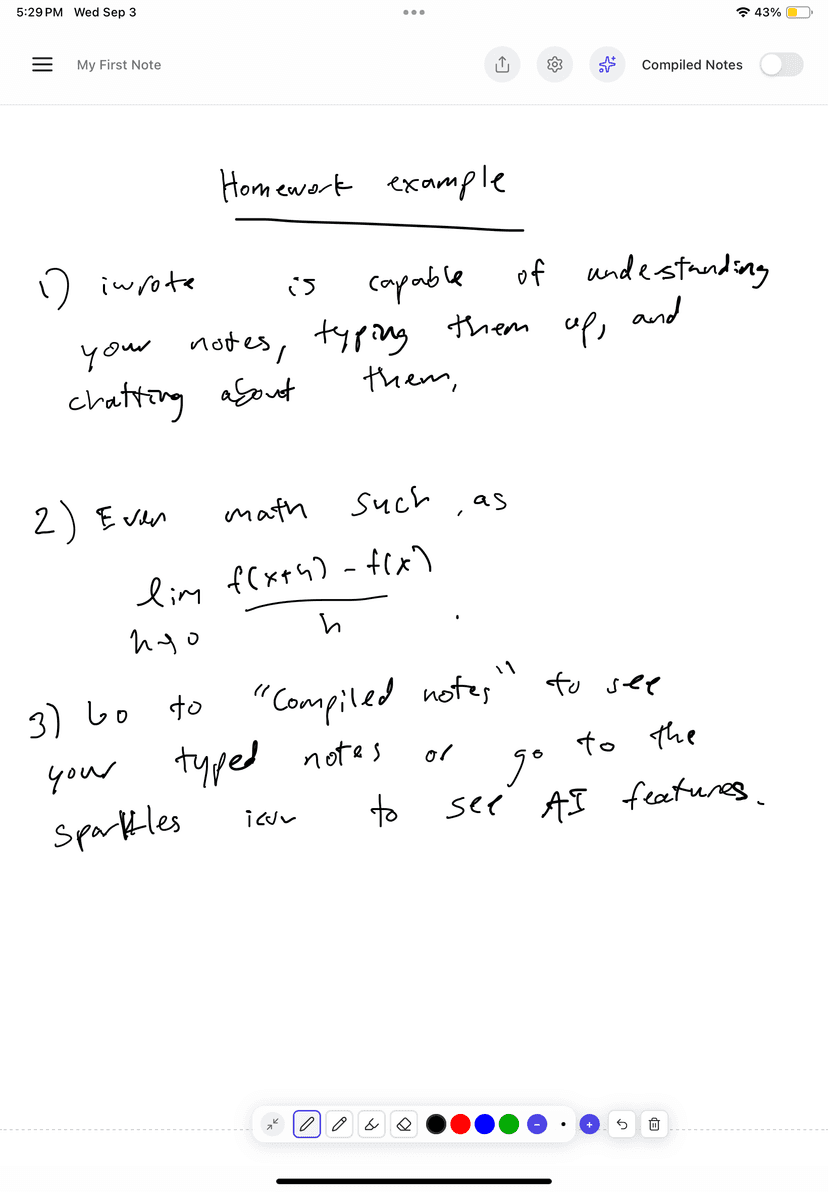 5:29 PM Wed Sep 3
43%
My First Note
Compiled Notes
Homework example
1) iwrote is capable of understanding
your notes, typing them up, and
chatting about them,
2) Even math such, as
lim f(x+h) - f(x)
h→0 h .
3) Go to "Compiled notes" to see
your typed notes or go to the
sparkles icon to see AI features.